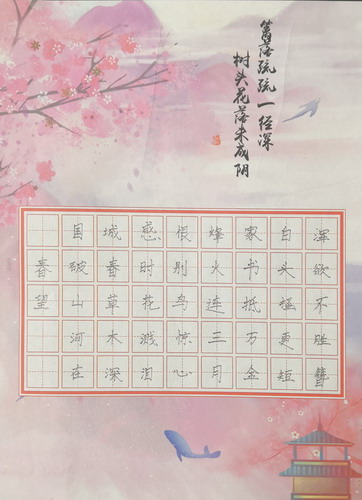 篱落疏疏一径深
树头花落未成阴
春望
国破山河在
城春草木深
感时花溅泪
恨别鸟惊心
烽火连三月
家书抵万金
白头搔更短
浑欲不胜簪